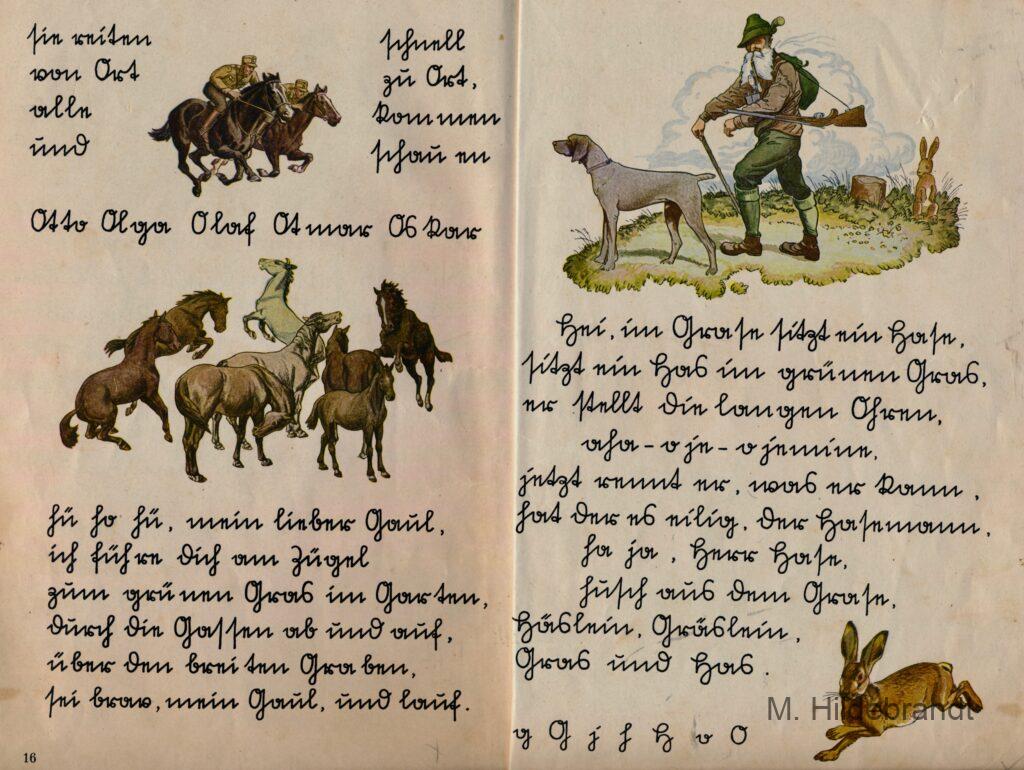 sie reiten schnell
von Ort zu Ort,
alle kommen
und schauen
Otto Olga Olaf Otmar Oskar
hü ho hü, mein lieber Gaul,
ich führe dich am Zügel
zum grünen Gras im Garten,
durch die Gassen ab und auf,
über den breiten Graben,
sei brav, mein Gaul, und lauf.
16
Hei, im Grase sitzt ein Hase,
sitzt ein Has im grünen Gras,
er stellt die langen Ohren,
aha - o je - o jemine,
jetzt rennt er, was er kann,
hat der es eilig, der Hasemann,
ha ja, Herr Hase,
husch aus dem Grase,
Häslein, Gräslein,
Gras und Has.
g G j h H o O
M. Hildebrandt